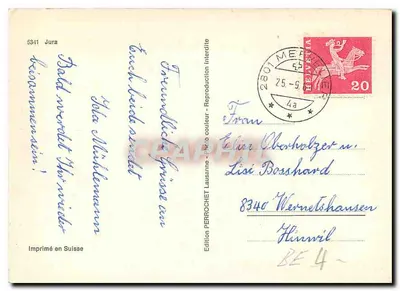 5341 Jura
Freundliche Grüsse an
Euch beide sendet
Ida Mühlemann
Bald werdet Ihr wieder
beisammen sein!
Imprimé en Suisse
Edition PERROCHET Lausanne - Photo couleur - Reproduction interdite
2801 MER
25.-5.
4a
HELVETIA
20
Frau
Elise Oberholzer u.
Lisi Bosshard
8340 Wernetshausen
Hinwil
BE 4-